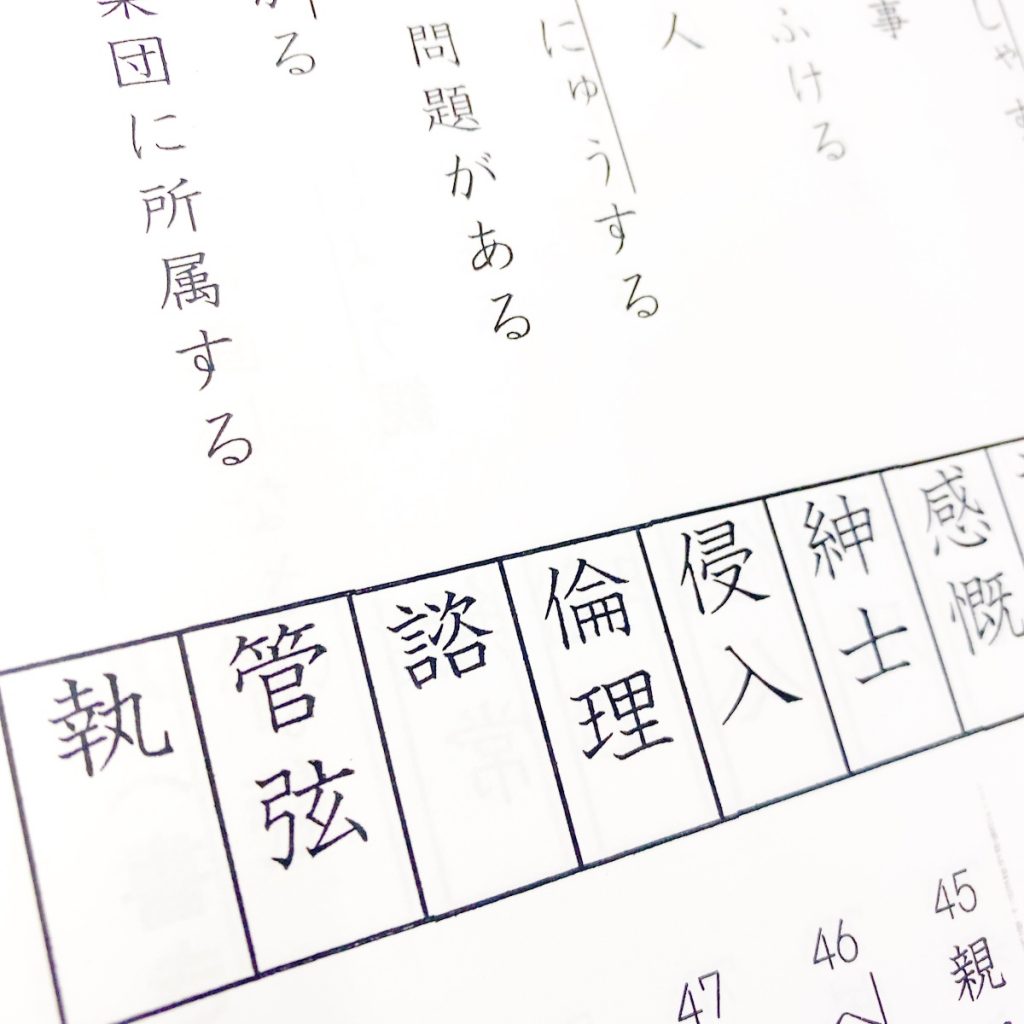 しゃす
事
ふける
人
にゅうする
問題がある
る
集団に所属する
感慨
紳士
侵入
倫理
諮
管弦
執
45
親
46
47